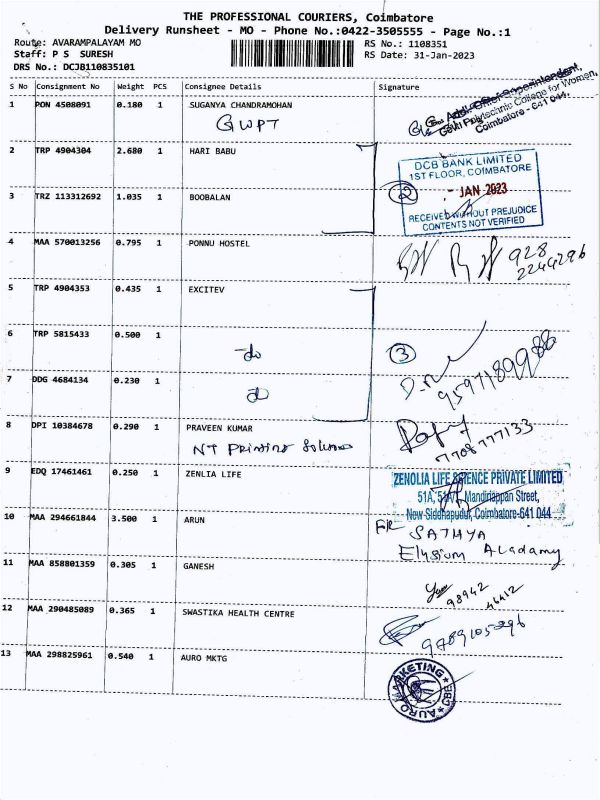 THE PROFESSIONAL COURIERS, Coimbatore
Delivery Runsheet - MO - Phone No.:0422-3505555 - Page No.:1
Route: AVARAMPALAYAM MO RS No.: 1108351
Staff: P S SURESH RS Date: 31-Jan-2023
DRS No.: DCJB110835101
S No Consignment No Weight PCS Consignee Details Signature
1 PON 4508091 0.180 1 SUGANYA CHANDRAMOHAN
GWPT
Polytechnic College for Women,
Coimbatore - 641 044.
2 TRP 4904304 2.680 1 HARI BABU
DCB BANK LIMITED
1ST FLOOR, COIMBATORE
- JAN 2023
RECEIVED WITHOUT PREJUDICE
CONTENTS NOT VERIFIED
3 TRZ 113312692 1.035 1 BOOBALAN
2
4 MAA 570013256 0.795 1 PONNU HOSTEL
928
2244296
5 TRP 4904353 0.435 1 EXCITEV
6 TRP 5815433 0.500 1
do
3
7 DDG 4684134 0.230 1
do
9597189986
8 DPI 10384678 0.290 1 PRAVEEN KUMAR
NT Printing Solutions
7708777133
9 EDQ 17461461 0.250 1 ZENLIA LIFE
ZENOLIA LIFE SCIENCE PRIVATE LIMITED
Mandiriappan Street,
New Siddhapudur, Coimbatore-641 044
10 MAA 294661844 3.500 1 ARUN
SATHYA
Elysium Academy
11 MAA 858801359 0.305 1 GANESH
98942
46412
12 MAA 290485089 0.365 1 SWASTIKA HEALTH CENTRE
9789105296
13 MAA 298825961 0.540 1 AURO MKTG
AURO MARKETING CBE